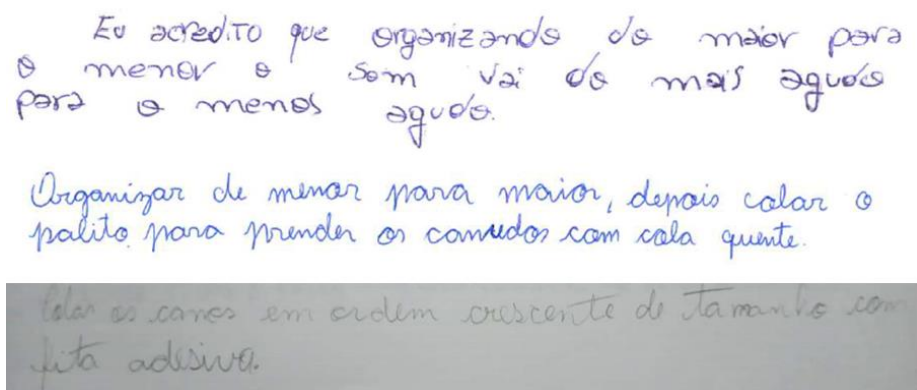 Eu acredito que organizando do maior para
o menor o som vai do mais agudo
para o menos agudo.
Organizar de menor para maior, depois colar o
palito para prender os canudos com cola quente.
Colar os canos em ordem crescente de tamanho com
fita adesiva.